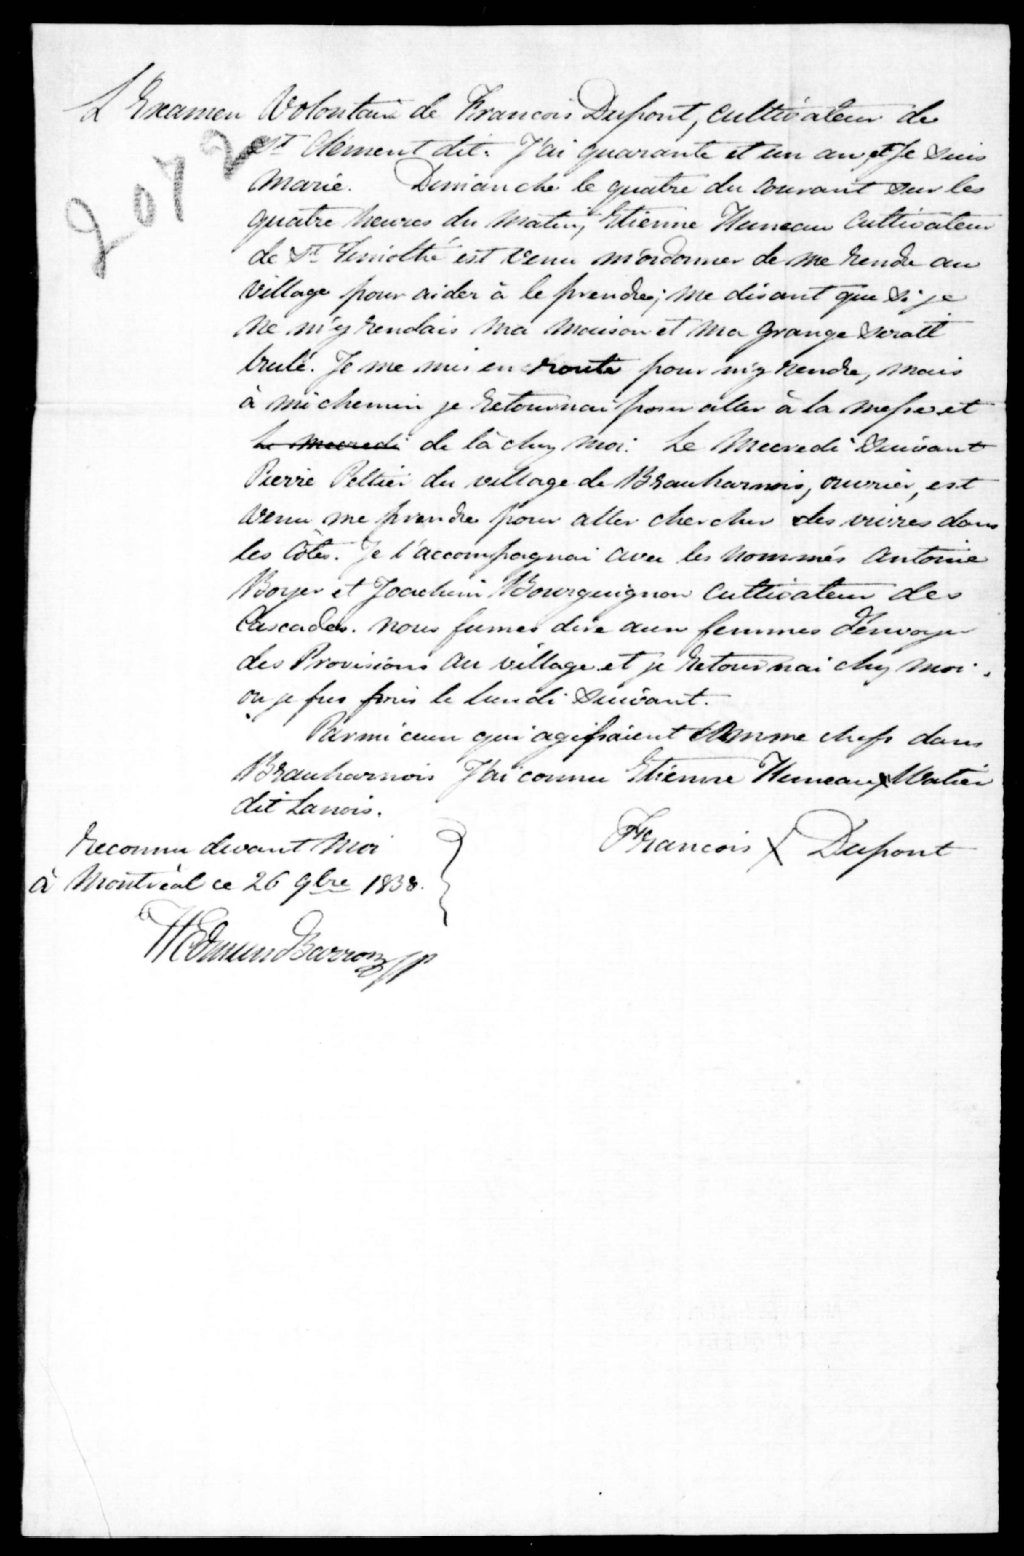 L'Examen Volontaire de Francois Dupont, cultivateur de
St Clément dit. J'ai quarante et un an et Je suis
Marié. Dimanche le quatre du courant sur les
quatre heures du matin, Etienne Huneau Cultivateur
de St Timothé est venu m'ordonner de me rendre au
Village pour aider à le prendre; me disant que si je
ne m'y rendais ma maison et ma grange serait
brulé. Je me mis en route pour m'y rendre, mais
à mi chemin je retournai pour aller à la messe et
le mecredi de là chez moi. Le Mecredi suivant
Pierre Peltier du village de Beauharnois, ouvrier, est
venu me prendre pour aller chercher des vivres dans
les Côtes. Je l'accompagnai avec les nommés Antoine
Boyer et Joachim Bourguignon Cultivateur des
Cascades. nous fumes dire aux femmes d'envoyer
des Provisions au village et je retournai chez moi.
ou je fus pris le lundi suivant.
Parmi ceux qui agissaient comme chefs dans
Beauharnois J'ai connu Etienne Huneau x Watier
dit Lanois.
Francois X Dupont
Reconnu devant Moi
à Montréal ce 26 9bre 1838.
H Edmund Barron JP
2072